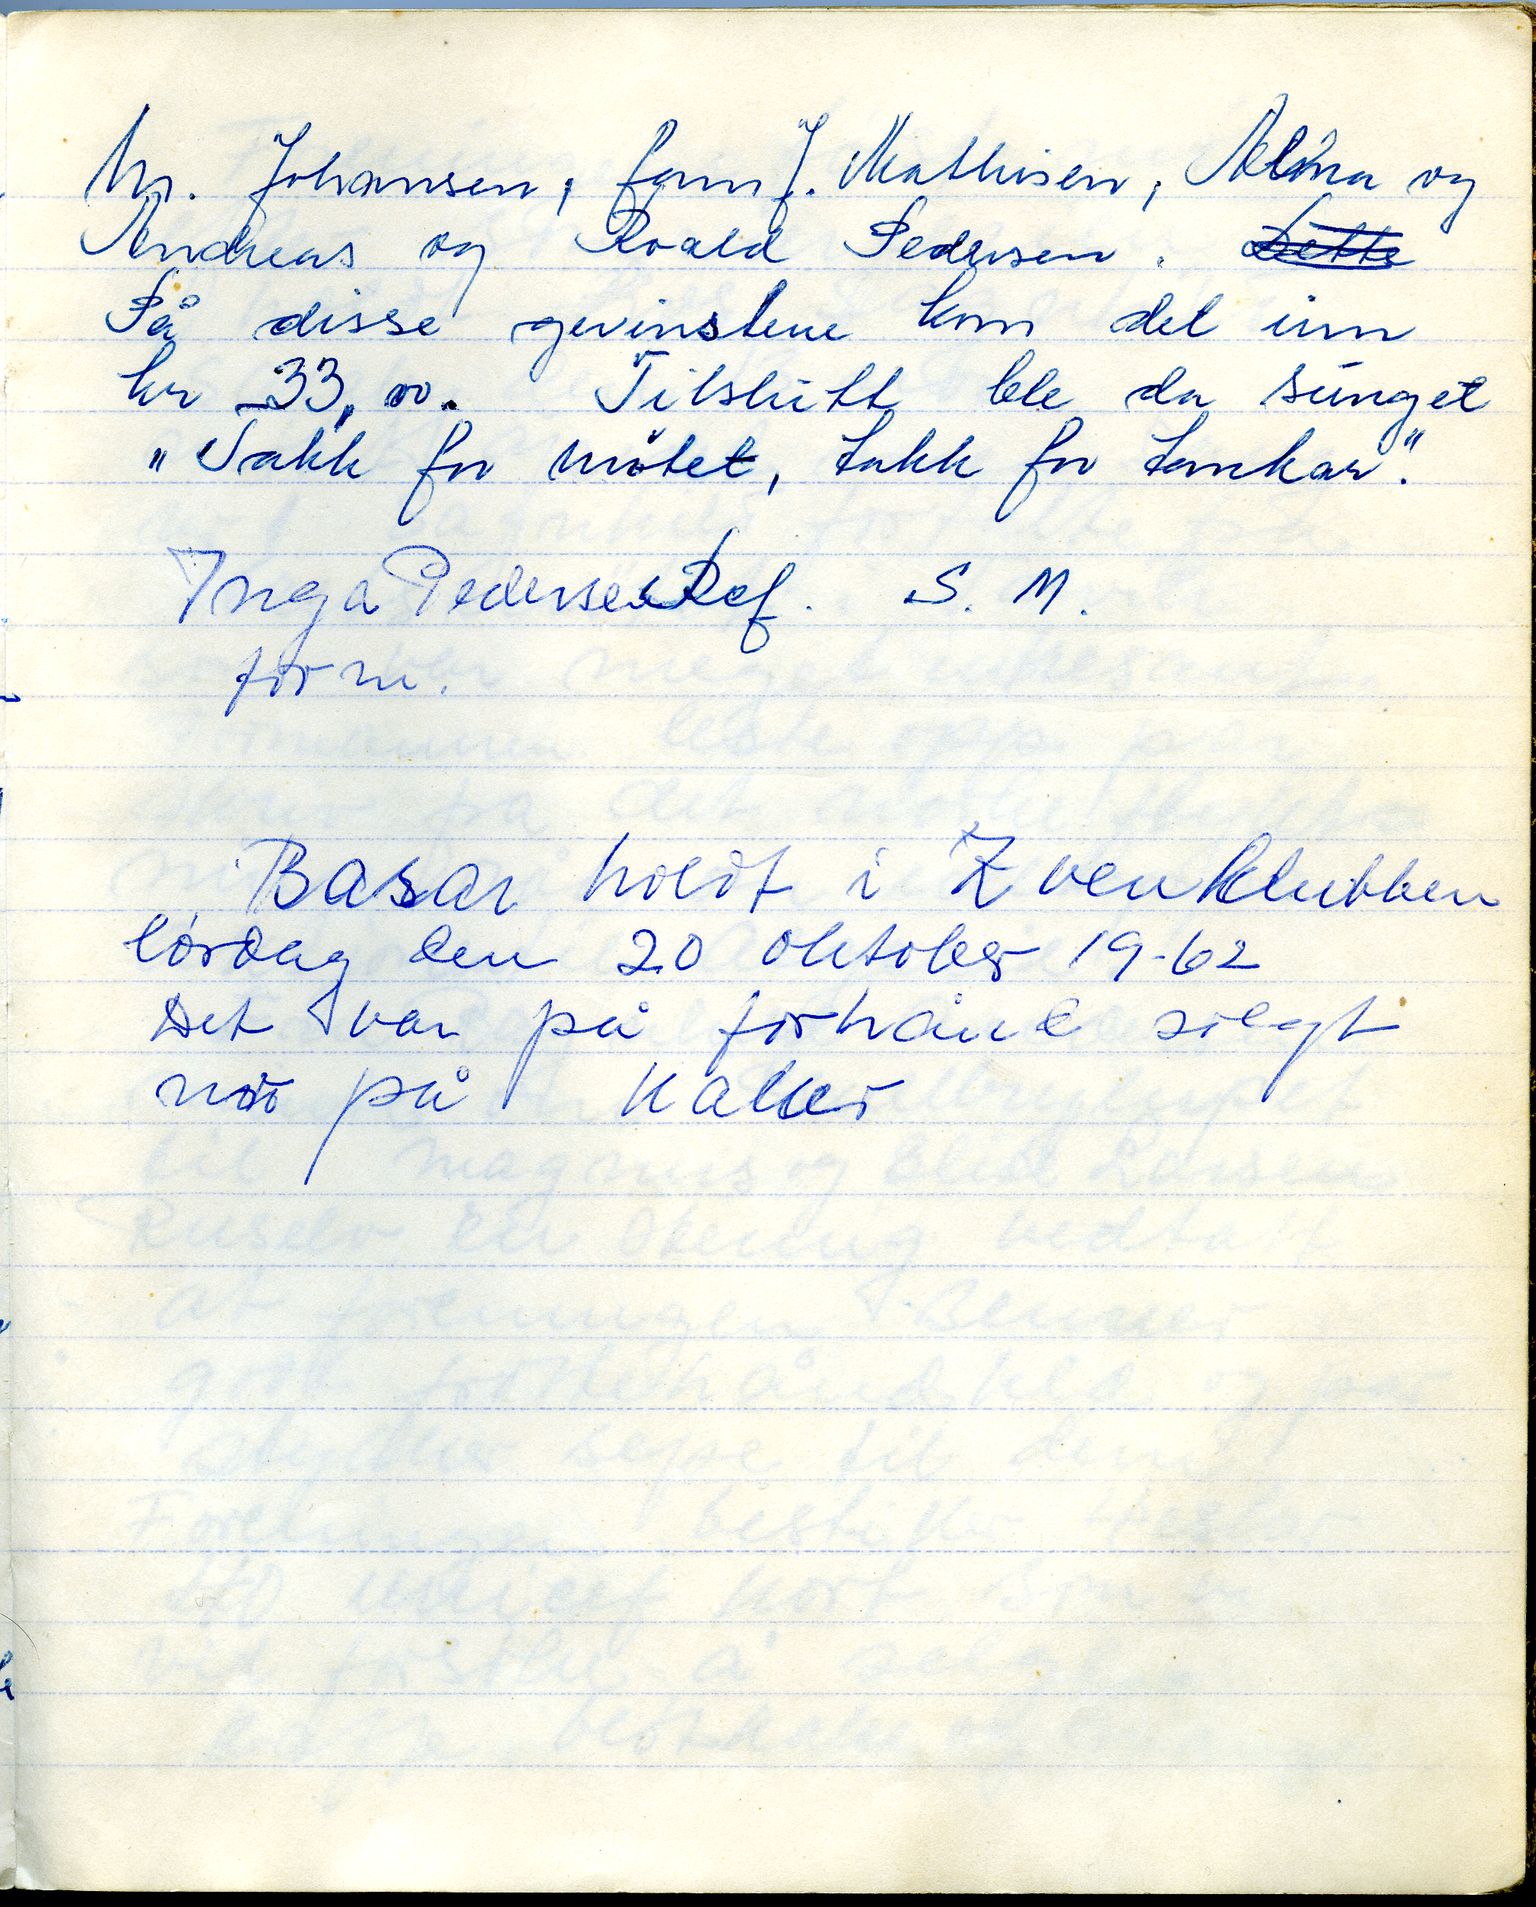 M. Johansen, fam J. Mathisen, Alma og
Andreas og Roald Pedersen. Dette
På disse gevinstene kom det inn
kr 33,00. Tilslutt ble da sunget
"Takk for møtet, takk for tankar".
Inga Pedersen Ref. S. M.
form.
Basar holdt i Kvenklubben
lørdag den 20 oktober 19-62
Det var på forhånd solgt
på